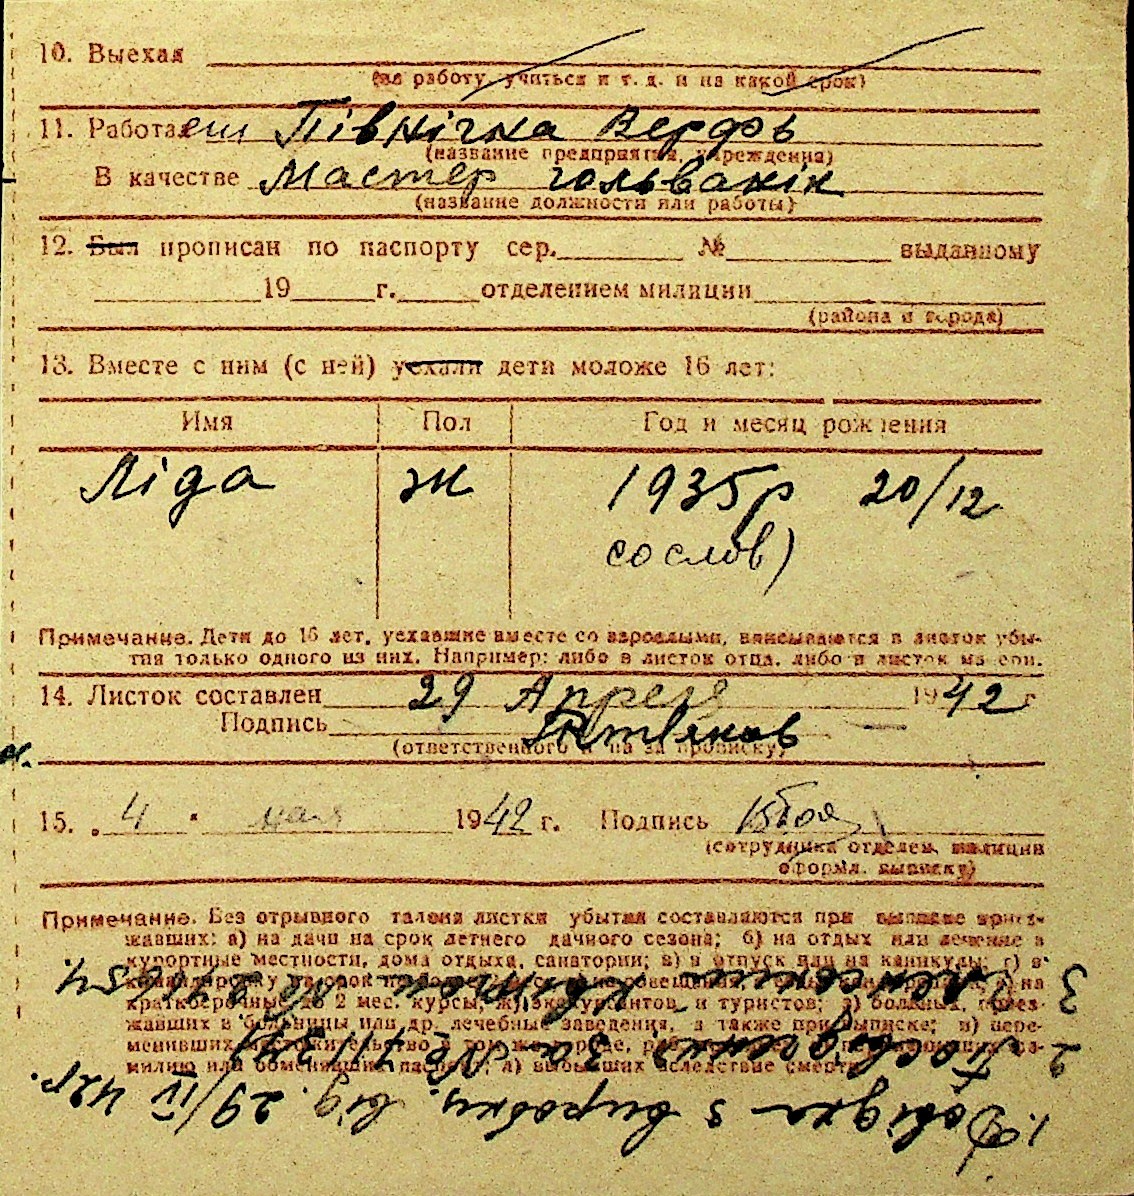 10. Выехал
(на работу, учиться и т. д. и на какой срок)
11. Работает Північна Верфь
(название предприятия, учреждения)
В качестве Мастер гольванік
(название должности или работы)
12. Был прописан по паспорту сер. № выданному
19 г. отделением милиции
(района и города)
13. Вместе с ним (с ней) уехали дети моложе 16 лет:
Имя Пол Год и месяц рождения
Ліда ж 1935р 20/12
со слов)
Примечание. Дети до 16 лет, уехавшие вместе со взрослыми, вписываются в листок убы-
тия только одного из них. Например: либо в листок отца, либо в листок матери.
14. Листок составлен 29 Апреля 1942 г
Подпись
(ответственного л на за прописку)
15. „ 4 " мая 1942 г. Подпись
(сотрудника отделен. милиции
оформл. выписку)
Примечание. Без отрывного талона листки убытия составляются при выписке приез-
жавших: а) на дачи на срок летнего дачного сезона; б) на отдых или лечение в
курортные местности, дома отдыха, санатории; в) в отпуск или на каникулы; г) в
краткосрочные до 2 мес. курсы; ж) экскурсантов и туристов; з) больных, приез-
жавших в больницы или др. лечебные заведения, а также при выписке; и) пере-
менивших
милию или обменявших паспорт; л) выбывших вследствие смерти.
1. Довідка з виробн. від. 29/IV 42 г.
2 Посвідчення за № 411/341
3